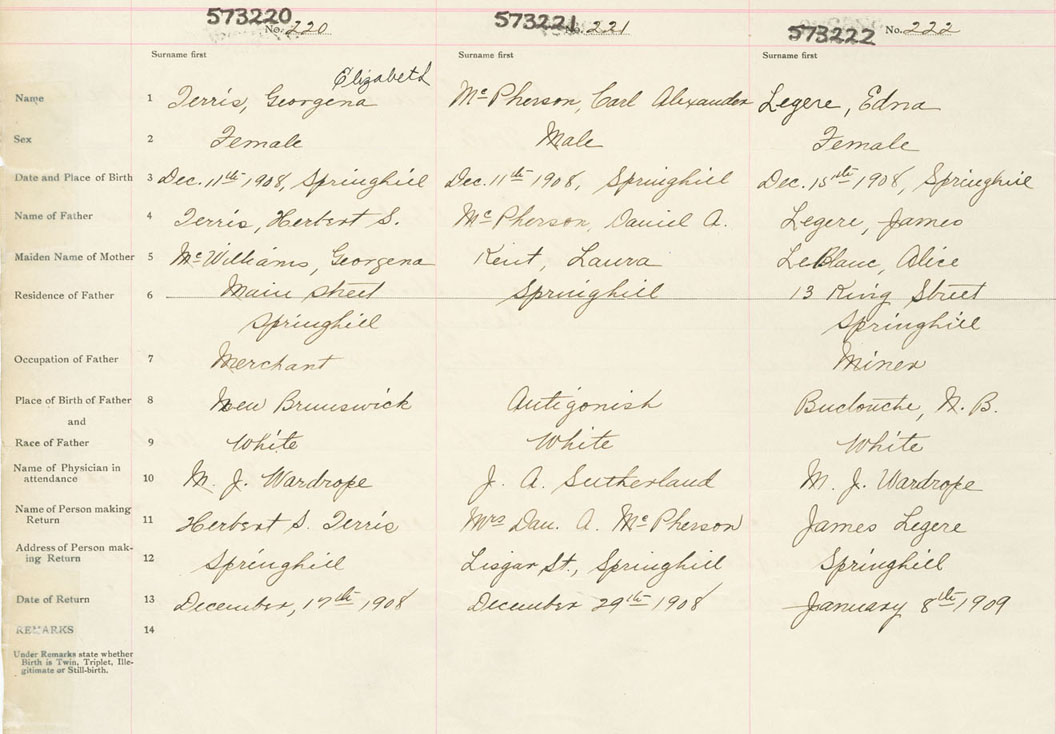 573220 573221 573222
No. 220 No. 221 No. 222
Surname first Surname first Surname first
Elizabeth
Name 1 Terris, Georgena McPherson, Carl Alexander Legere, Edna
Sex 2 Female Male Female
Date and Place of Birth 3 Dec. 11th 1908, Springhill Dec. 11th 1908, Springhill Dec. 15th 1908, Springhill
Name of Father 4 Terris, Herbert S. McPherson, Daniel A. Legere, James
Maiden Name of Mother 5 McWilliams, Georgena Kent, Laura LeBlanc, Alice
Residence of Father 6 Main street Springhill 13 King Street
Springhill Springhill
Occupation of Father 7 Merchant Miner
Place of Birth of Father 8 New Brunswick Antigonish Buctouche, N. B.
and
Race of Father 9 White White White
Name of Physician in
attendance 10 M. J. Wardrope J. A. Sutherland M. J. Wardrope
Name of Person making
Return 11 Herbert S. Terris Mrs Dan. A. McPherson James Legere
Address of Person mak-
ing Return 12 Springhill Lisgar St., Springhill Springhill
Date of Return 13 December, 17th 1908 December 29th 1908 January 8th 1909
REMARKS 14
Under Remarks state whether
Birth is Twin, Triplet, Ille-
gitimate or Still-birth.